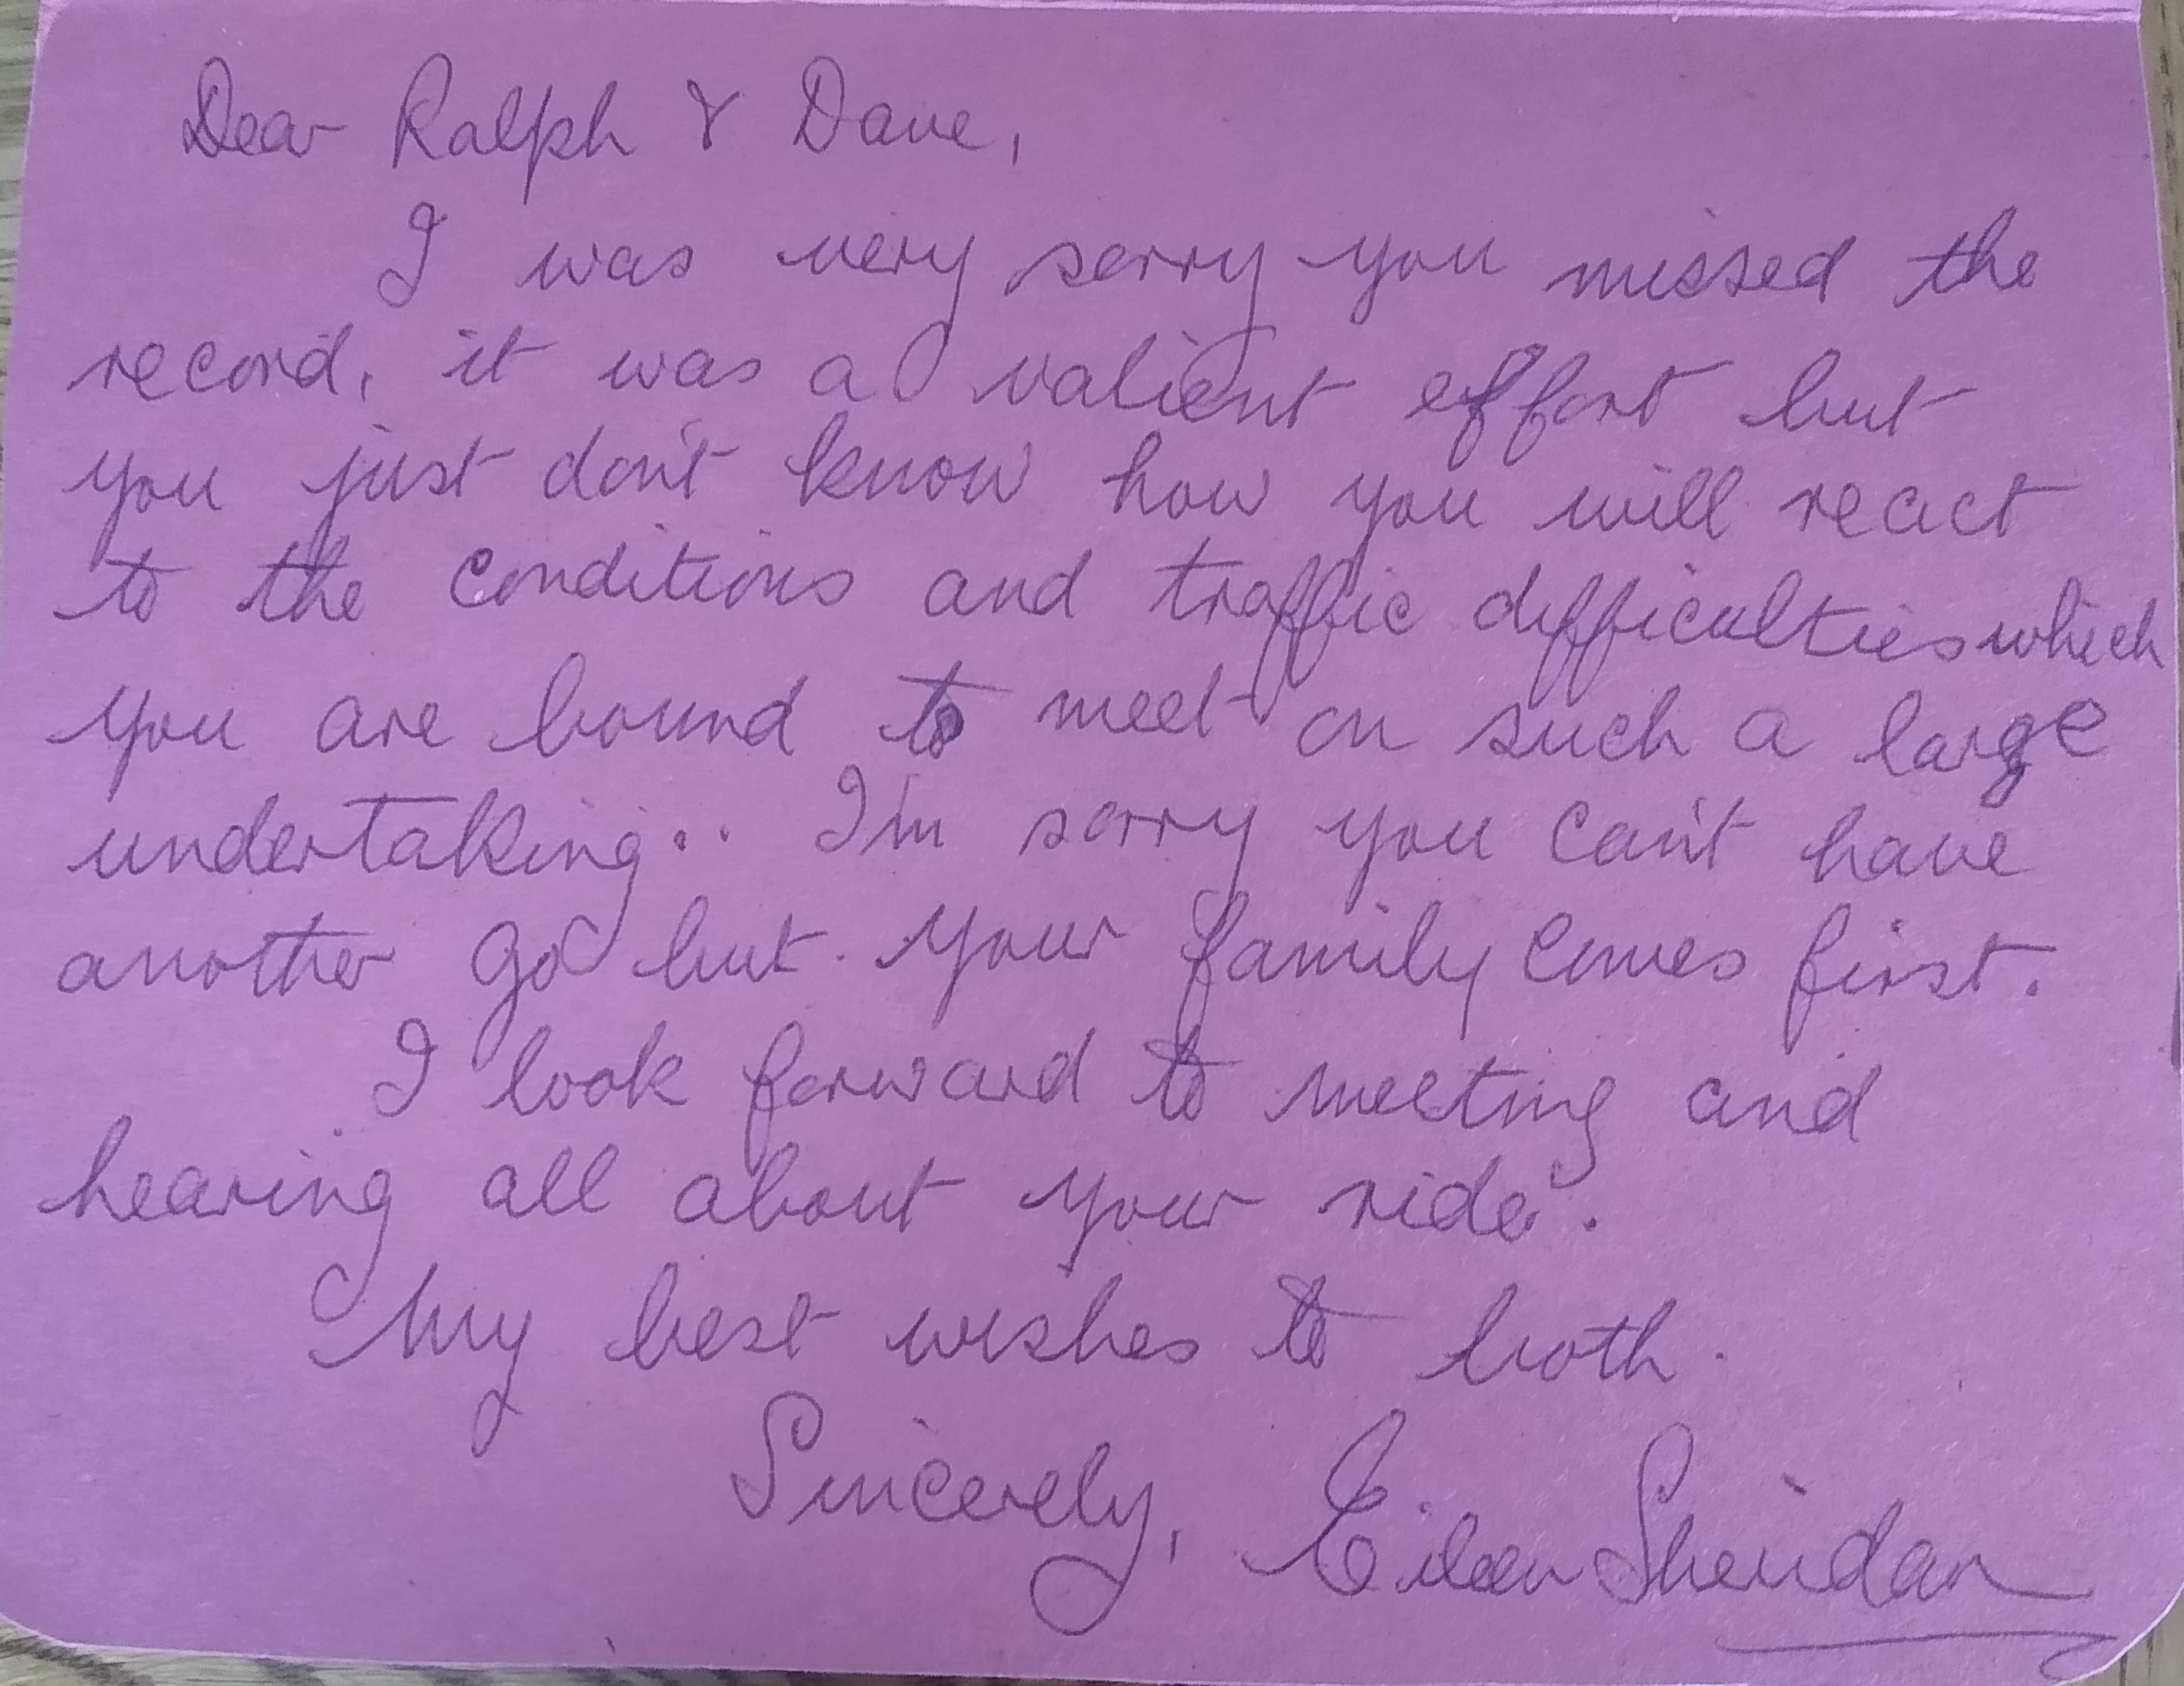 Dear Ralph & Dave,
I was very sorry you missed the
record, it was a valient effort but
you just don't know how you will react
to the conditions and traffic difficulties which
you are bound to meet on such a large
undertaking.. I'm sorry you can't have
another go but your family comes first.
I look forward to meeting and
hearing all about your ride.
My best wishes to both.
Sincerely, Eileen Sheridan